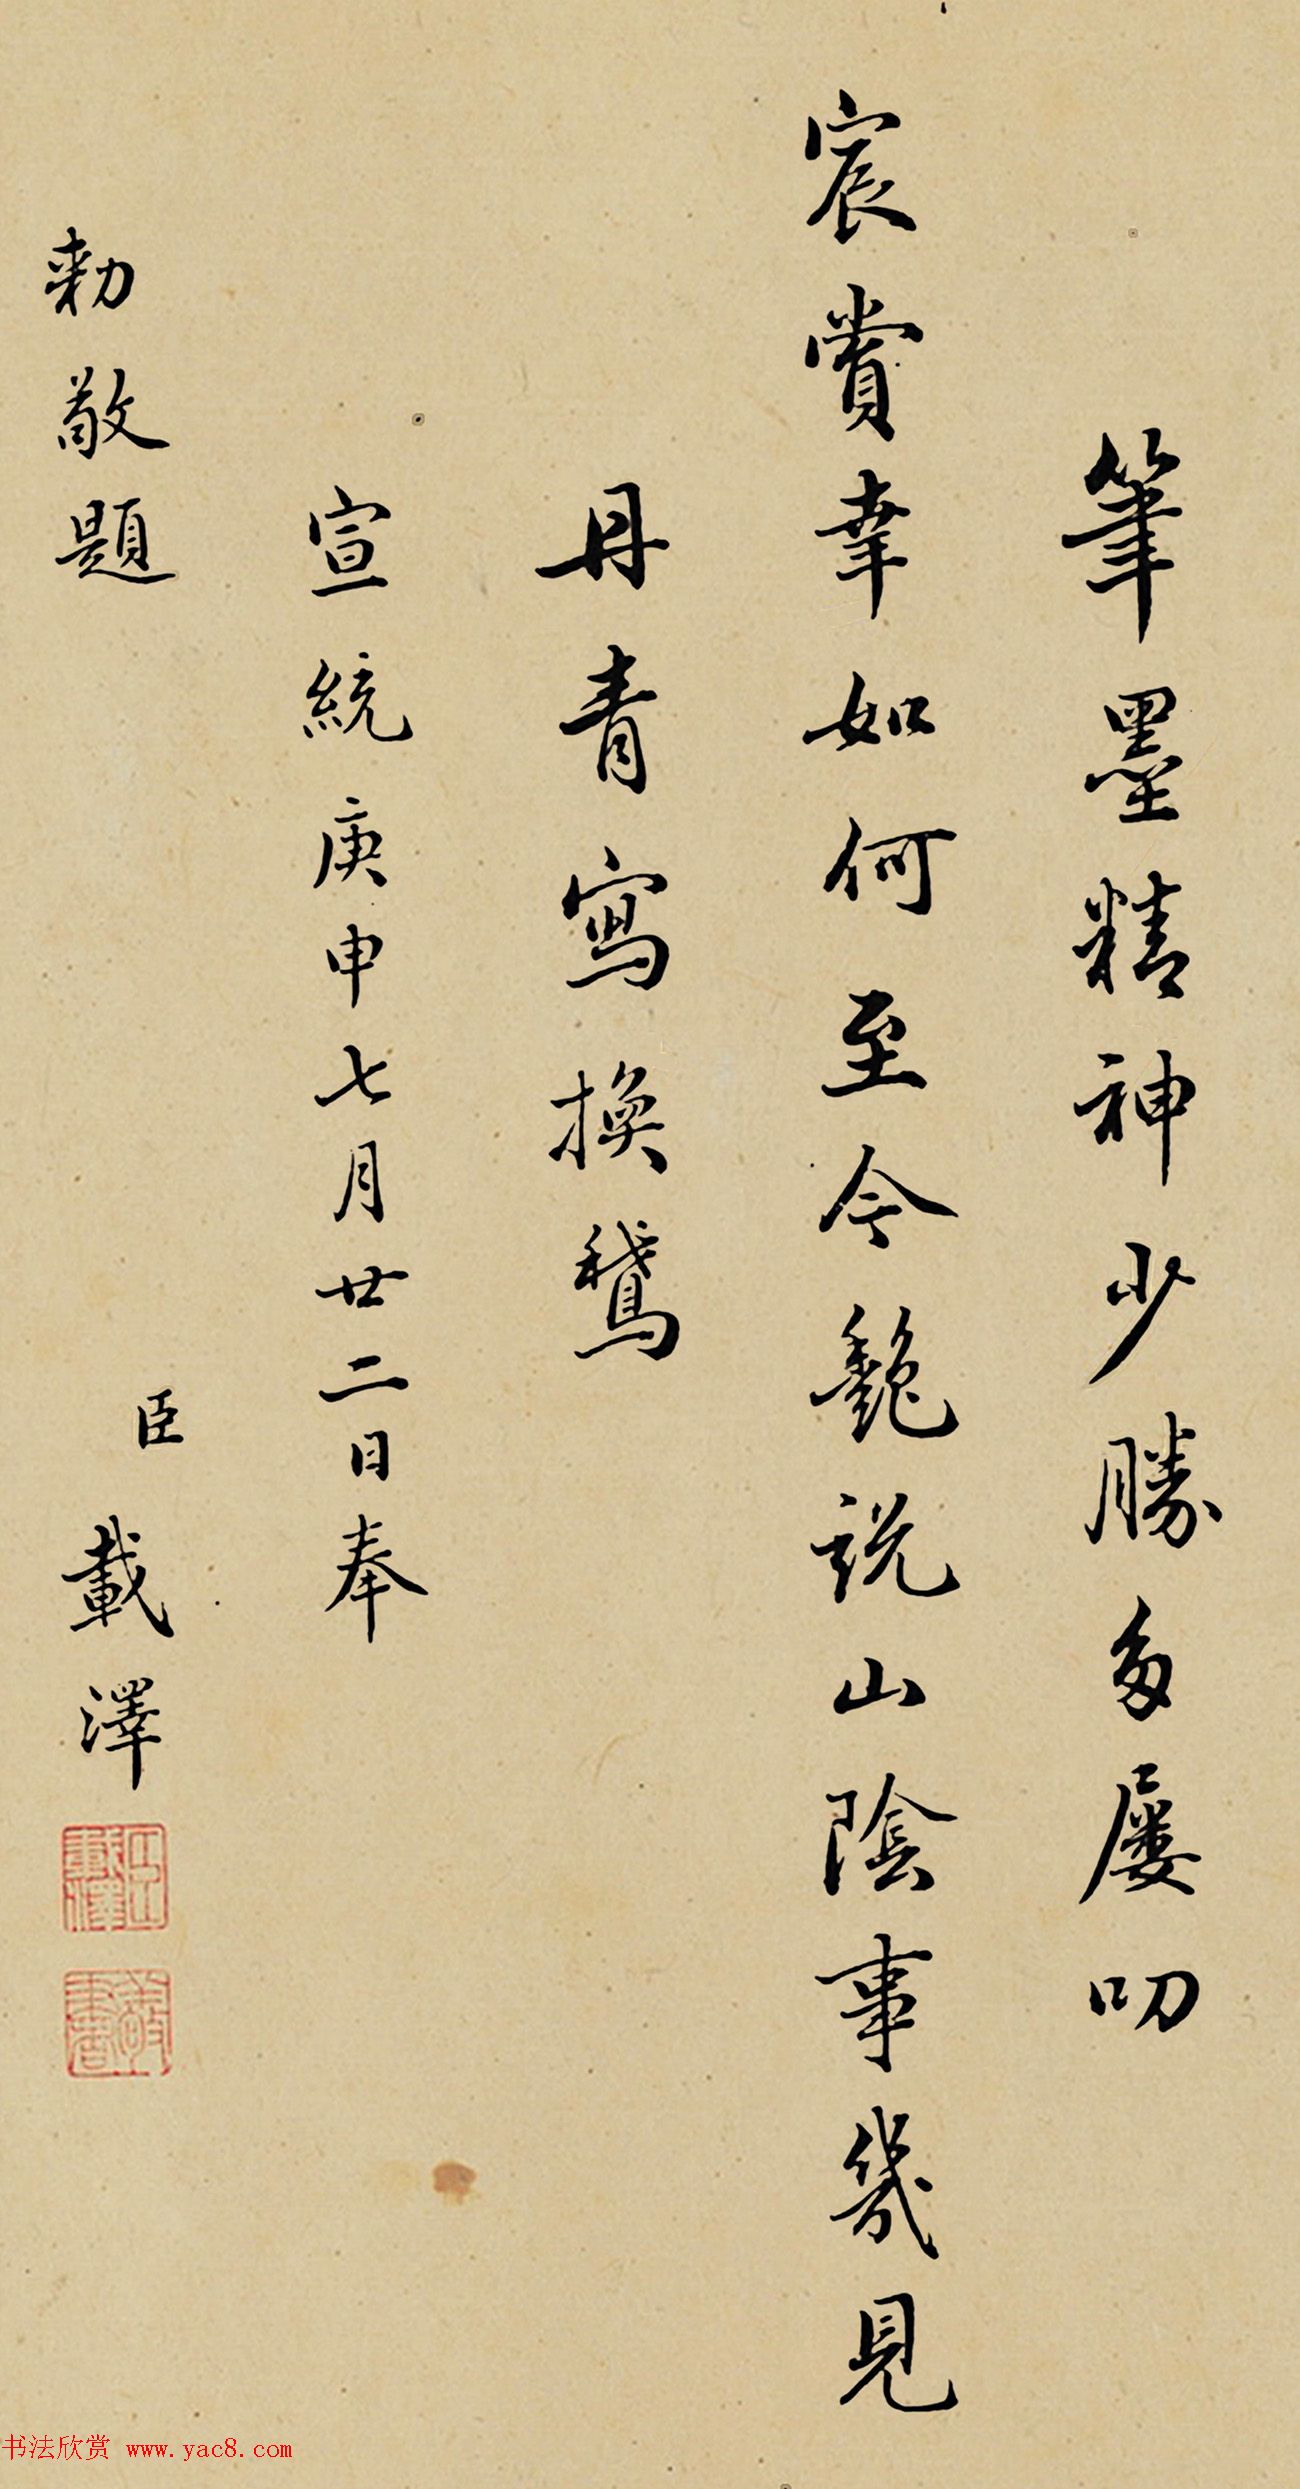 筆墨精神少勝多屢叨
宸賞幸如何至今艷説山陰事幾見
丹青寫換鵞
宣統庚申七月廿二日奉
勅敬題
臣載澤
臣載澤
敬書
书法欣赏 www.yac8.com